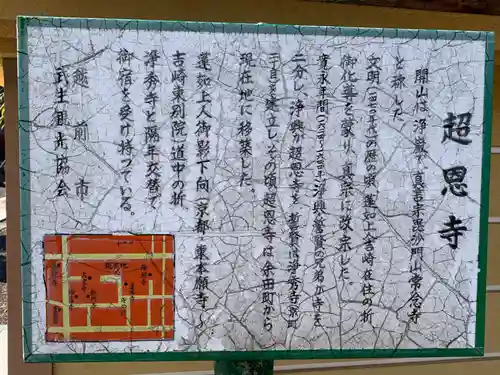 超恩寺
開山は浄尊で真言宗毘沙門山常念寺
と称した
文明(一四七〇年代)の暦の頃、蓮如上人吉崎在住の折
御化導を蒙り、真宗に改宗した。
寛永年間(一六二四〜一六四四)浄興、誓賢の兄弟が寺を
二分し、浄興が超恩寺を、誓賢は浄秀寺(京町
二丁目)を建立し、その頃超恩寺は余田町から
現在地に移築した。
蓮如上人御影下向(京都 東本願寺〜
吉崎東別院)道中の折
浄秀寺と隔年交替で
御宿を受け持っている。
越前市
武生観光協会